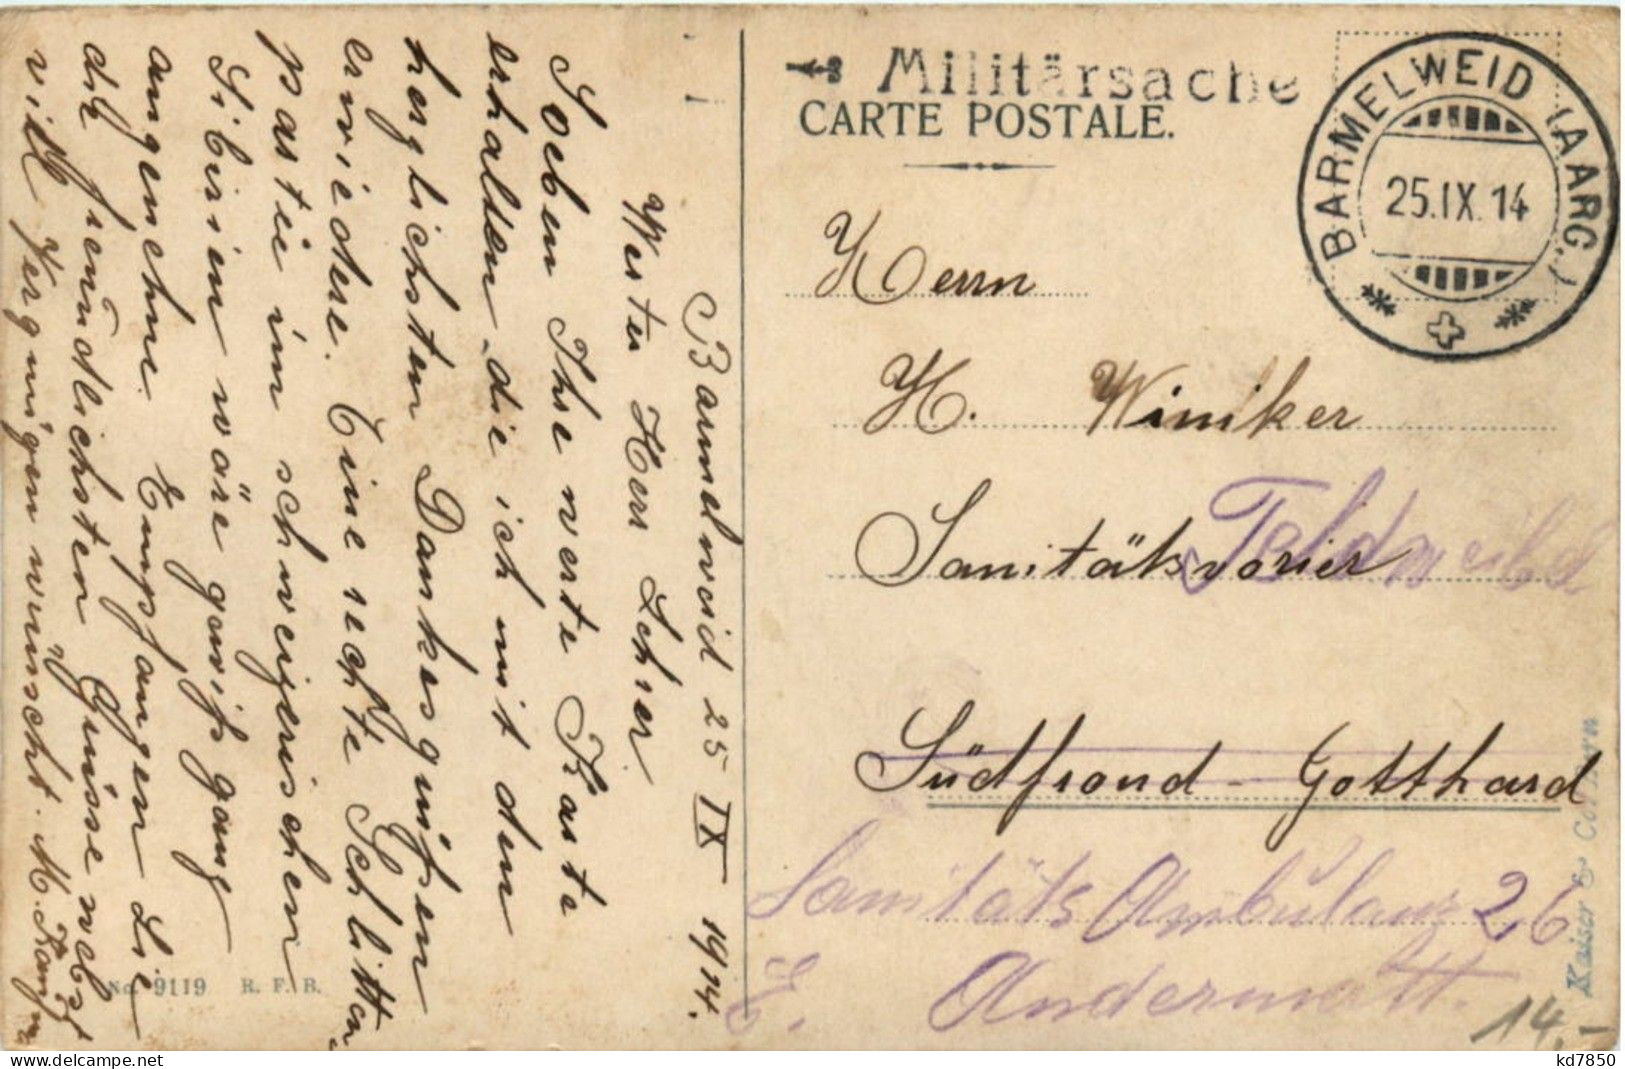 Barmelweid 25 IX 1914.
Werter Herr Lehrer
Soeben Ihre werte Karte
erhalten, die ich mit den
herzlichsten Dankesgrüßen
erwiedere. Eine rechte Schlitten
partie im schweizerischen
Sibirien wäre gewiß ganz
angenehm. Empfangen Sie
die freundlichsten Grüsse nebst
viel Vergnügen wünscht. M.
No. 9119 R. F. B.
Militärsache
CARTE POSTALE.
BARMELWEID (AARG.)
25.IX.14
Herrn
H. Winiker
Sanitätsvorier
Feldweibel
Südfrond - Gotthard
Sanitäts Ambulanz 26
Andermatt.
Kaiser & Co. Bern
14.-
kd7850